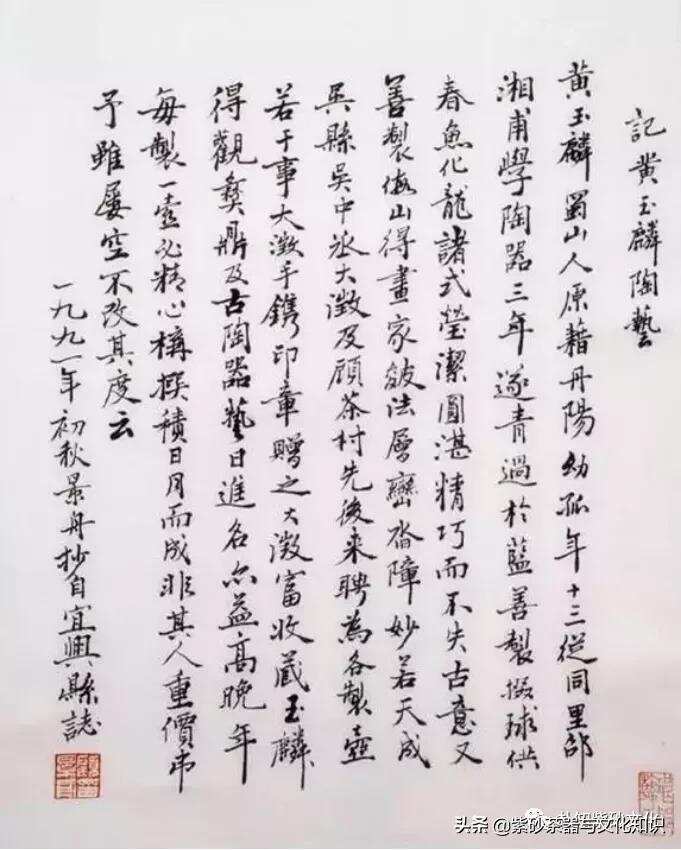 記黃玉麟陶藝
黃玉麟蜀山人原藉丹陽幼孤年十三從同里邵
湘甫學陶器三年遂青過於藍善製掇球供
春魚化龍諸式瑩潔圓湛精巧而不失古意又
善製假山得畫家皴法層巒沓障妙若天成
吳縣吳中丞大澂及顧茶村先後来聘為各製壺
若干事大澂手鐫印章贈之大澂富收藏玉麟
得觀彝鼎及古陶器藝日進名亦益高晚年
每製一壺必精心構撰積日月而成非其人重價弗
予雖屢空不改其度云
一九九一年初秋景舟抄自宜興縣誌
头条 @紫砂茶器与文化知识